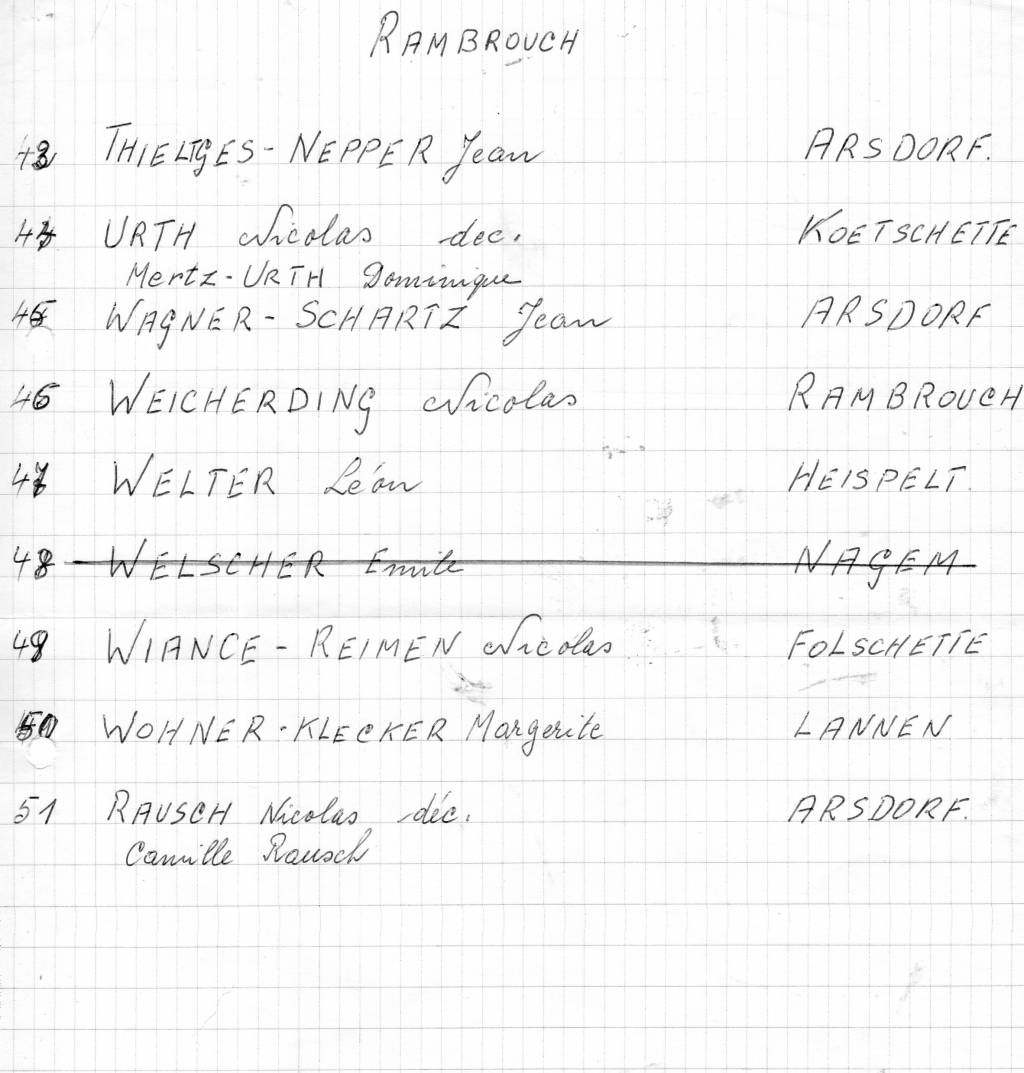 RAMBROUCH
43 THIELTGES - NEPPER Jean ARSDORF.
44 URTH Nicolas dec. KOETSCHETTE
Mertz - URTH Dominique
45 WAGNER - SCHARTZ Jean ARSDORF
46 WEICHERDING Nicolas RAMBROUCH
47 WELTER Léon HEISPELT.
48 WELSCHER Emile NAGEM
49 WIANCE - REIMEN Nicolas FOLSCHETTE
50 WOHNER - KLECKER Margerite LANNEN
51 RAUSCH Nicolas déc. ARSDORF.
Camille Rausch